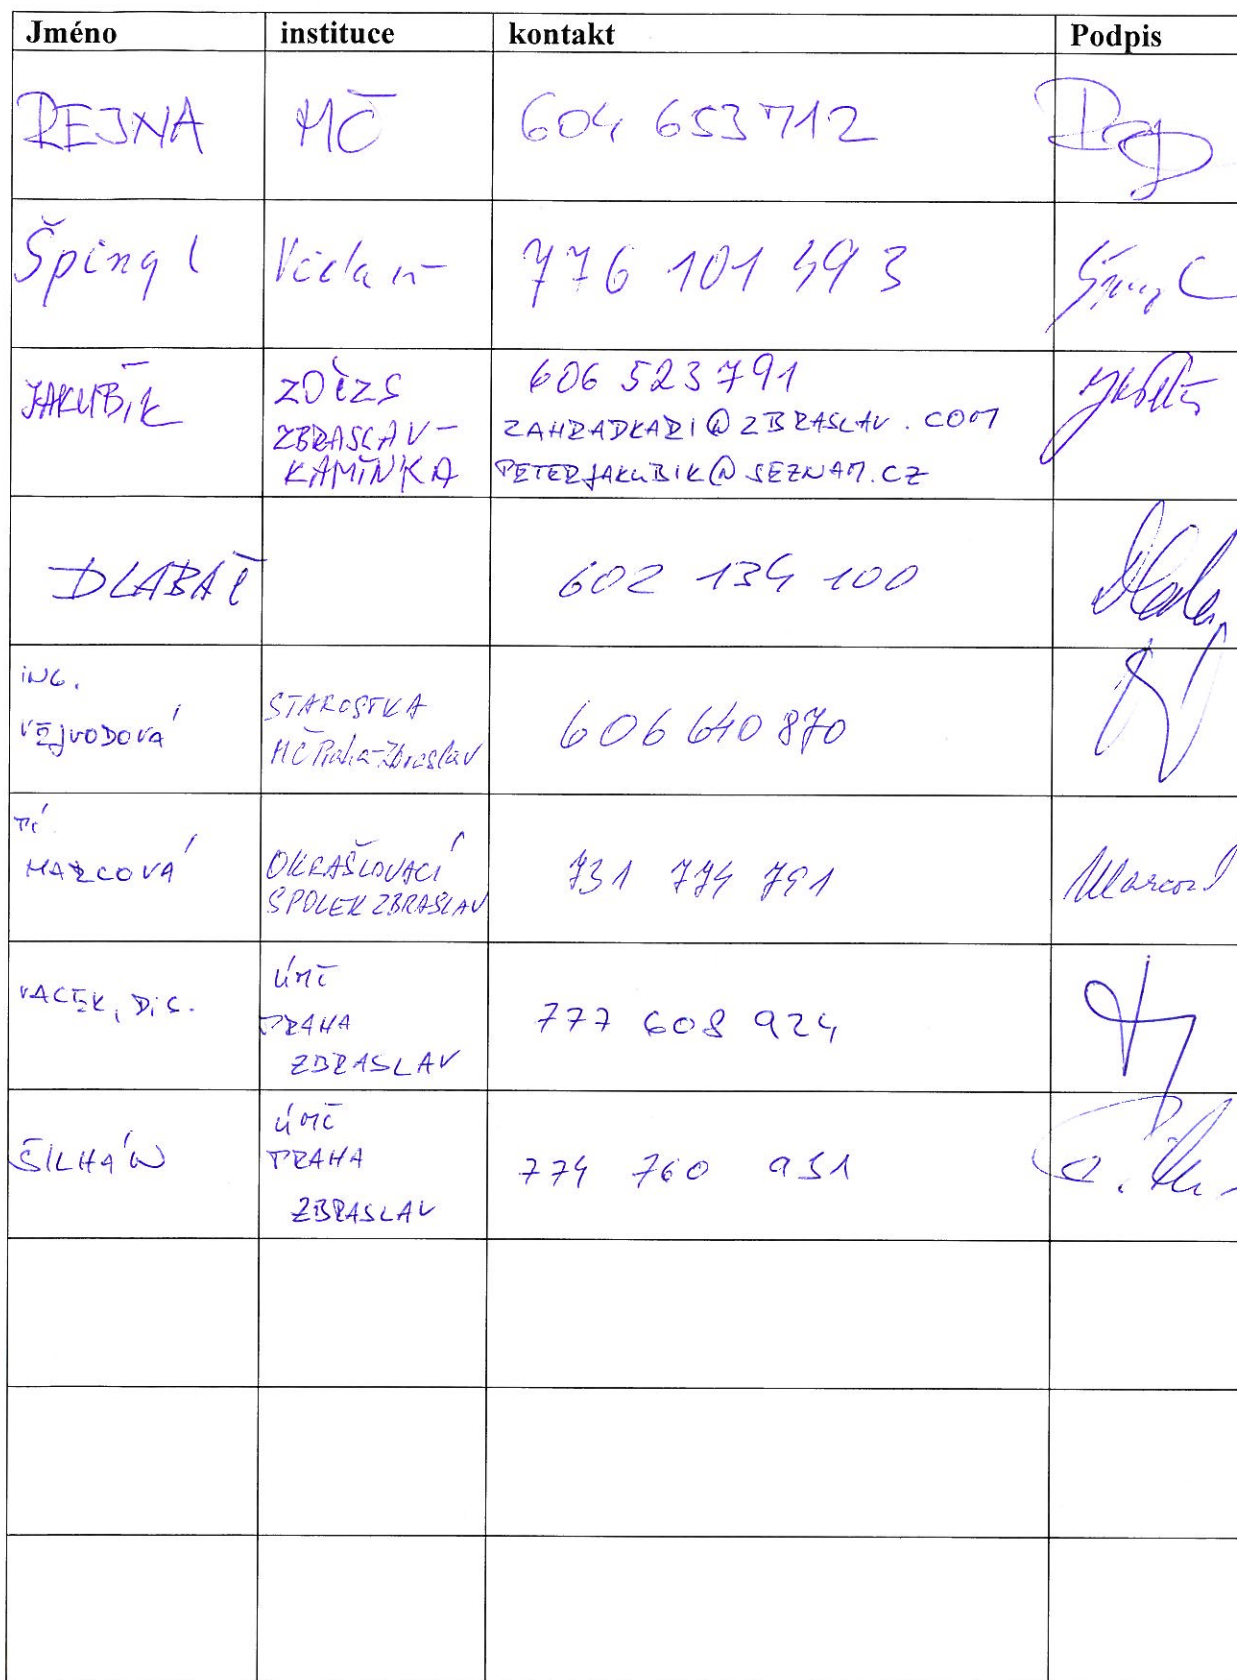 Jméno instituce kontakt Podpis
REJNA MČ 604 653 712
Špingl 776 101 493
JAKUBÍK ZOČZS ZBRASLAV-KAMÍNKA 606 523 791
ZAHRADKARI@ZBRASLAV.COM
PETERJAKUBIK@SEZNAM.CZ
DLABAČ 602 134 100
ING.
VEJVODOVÁ
STAROSTKA
MČ Praha-Zbraslav
606 640 870
PÍ
MARCOVÁ
OKRAŠLOVACÍ
SPOLEK ZBRASLAV
731 774 791
Marcov
VACEK, DiS.
ÚMČ
PRAHA
ZBRASLAV
777 608 924
ŠILHÁN
ÚMČ
PRAHA
ZBRASLAV
774 760 951